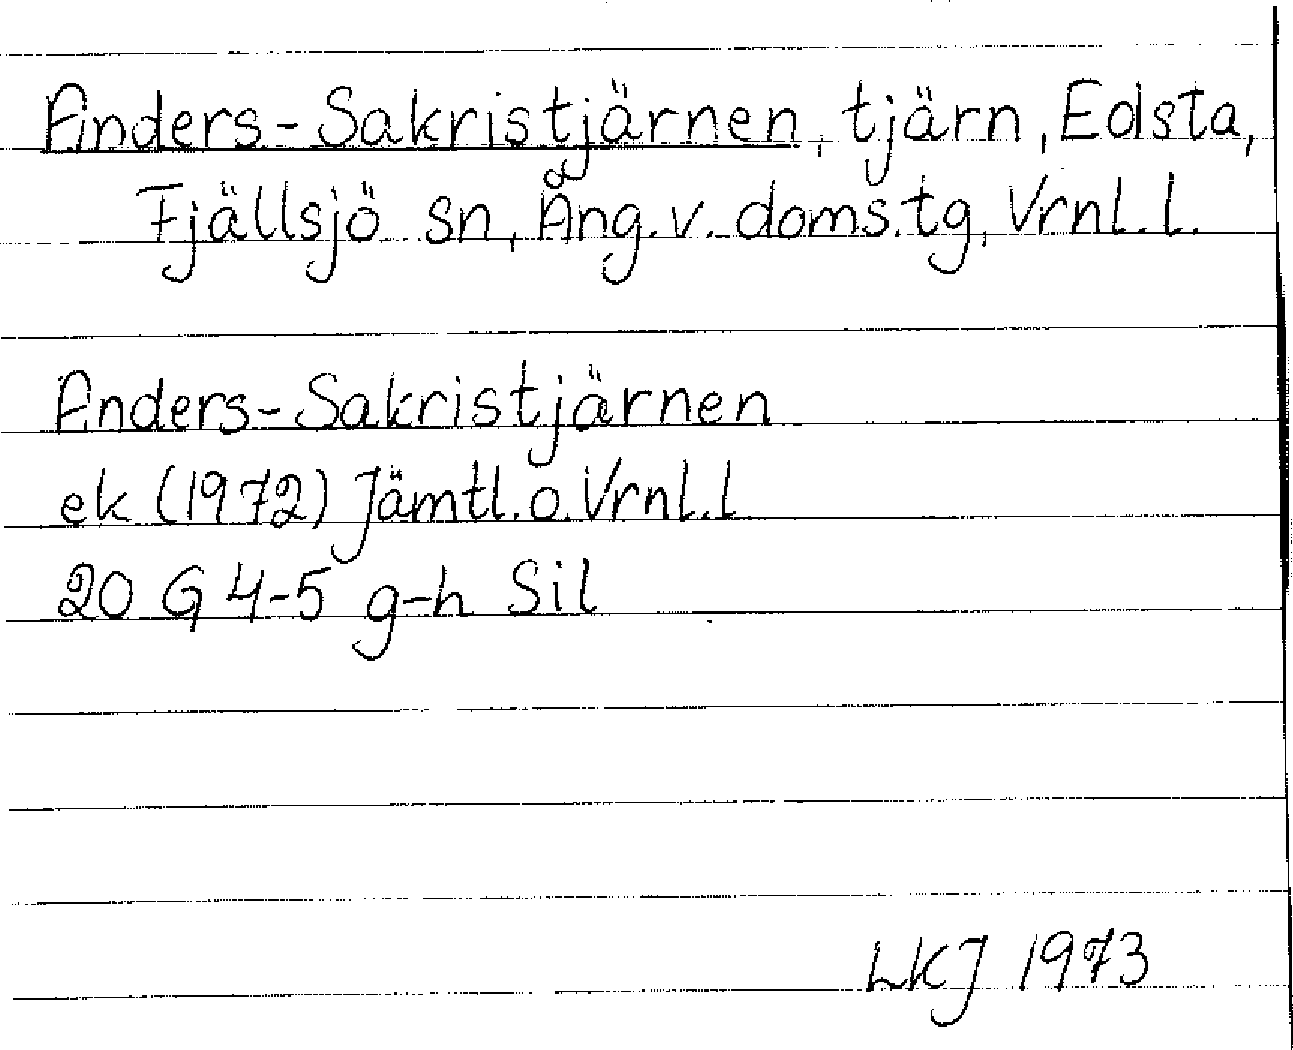 Anders-Sakristjärnen, tjärn, Edsta,
Fjällsjö sn, Ång. v. doms.tg, Vrnl. l.
Anders-Sakristjärnen
ek (1972) Jämtl. o. Vrnl. l
20 G 4-5 g-h Sil
LKJ 1973